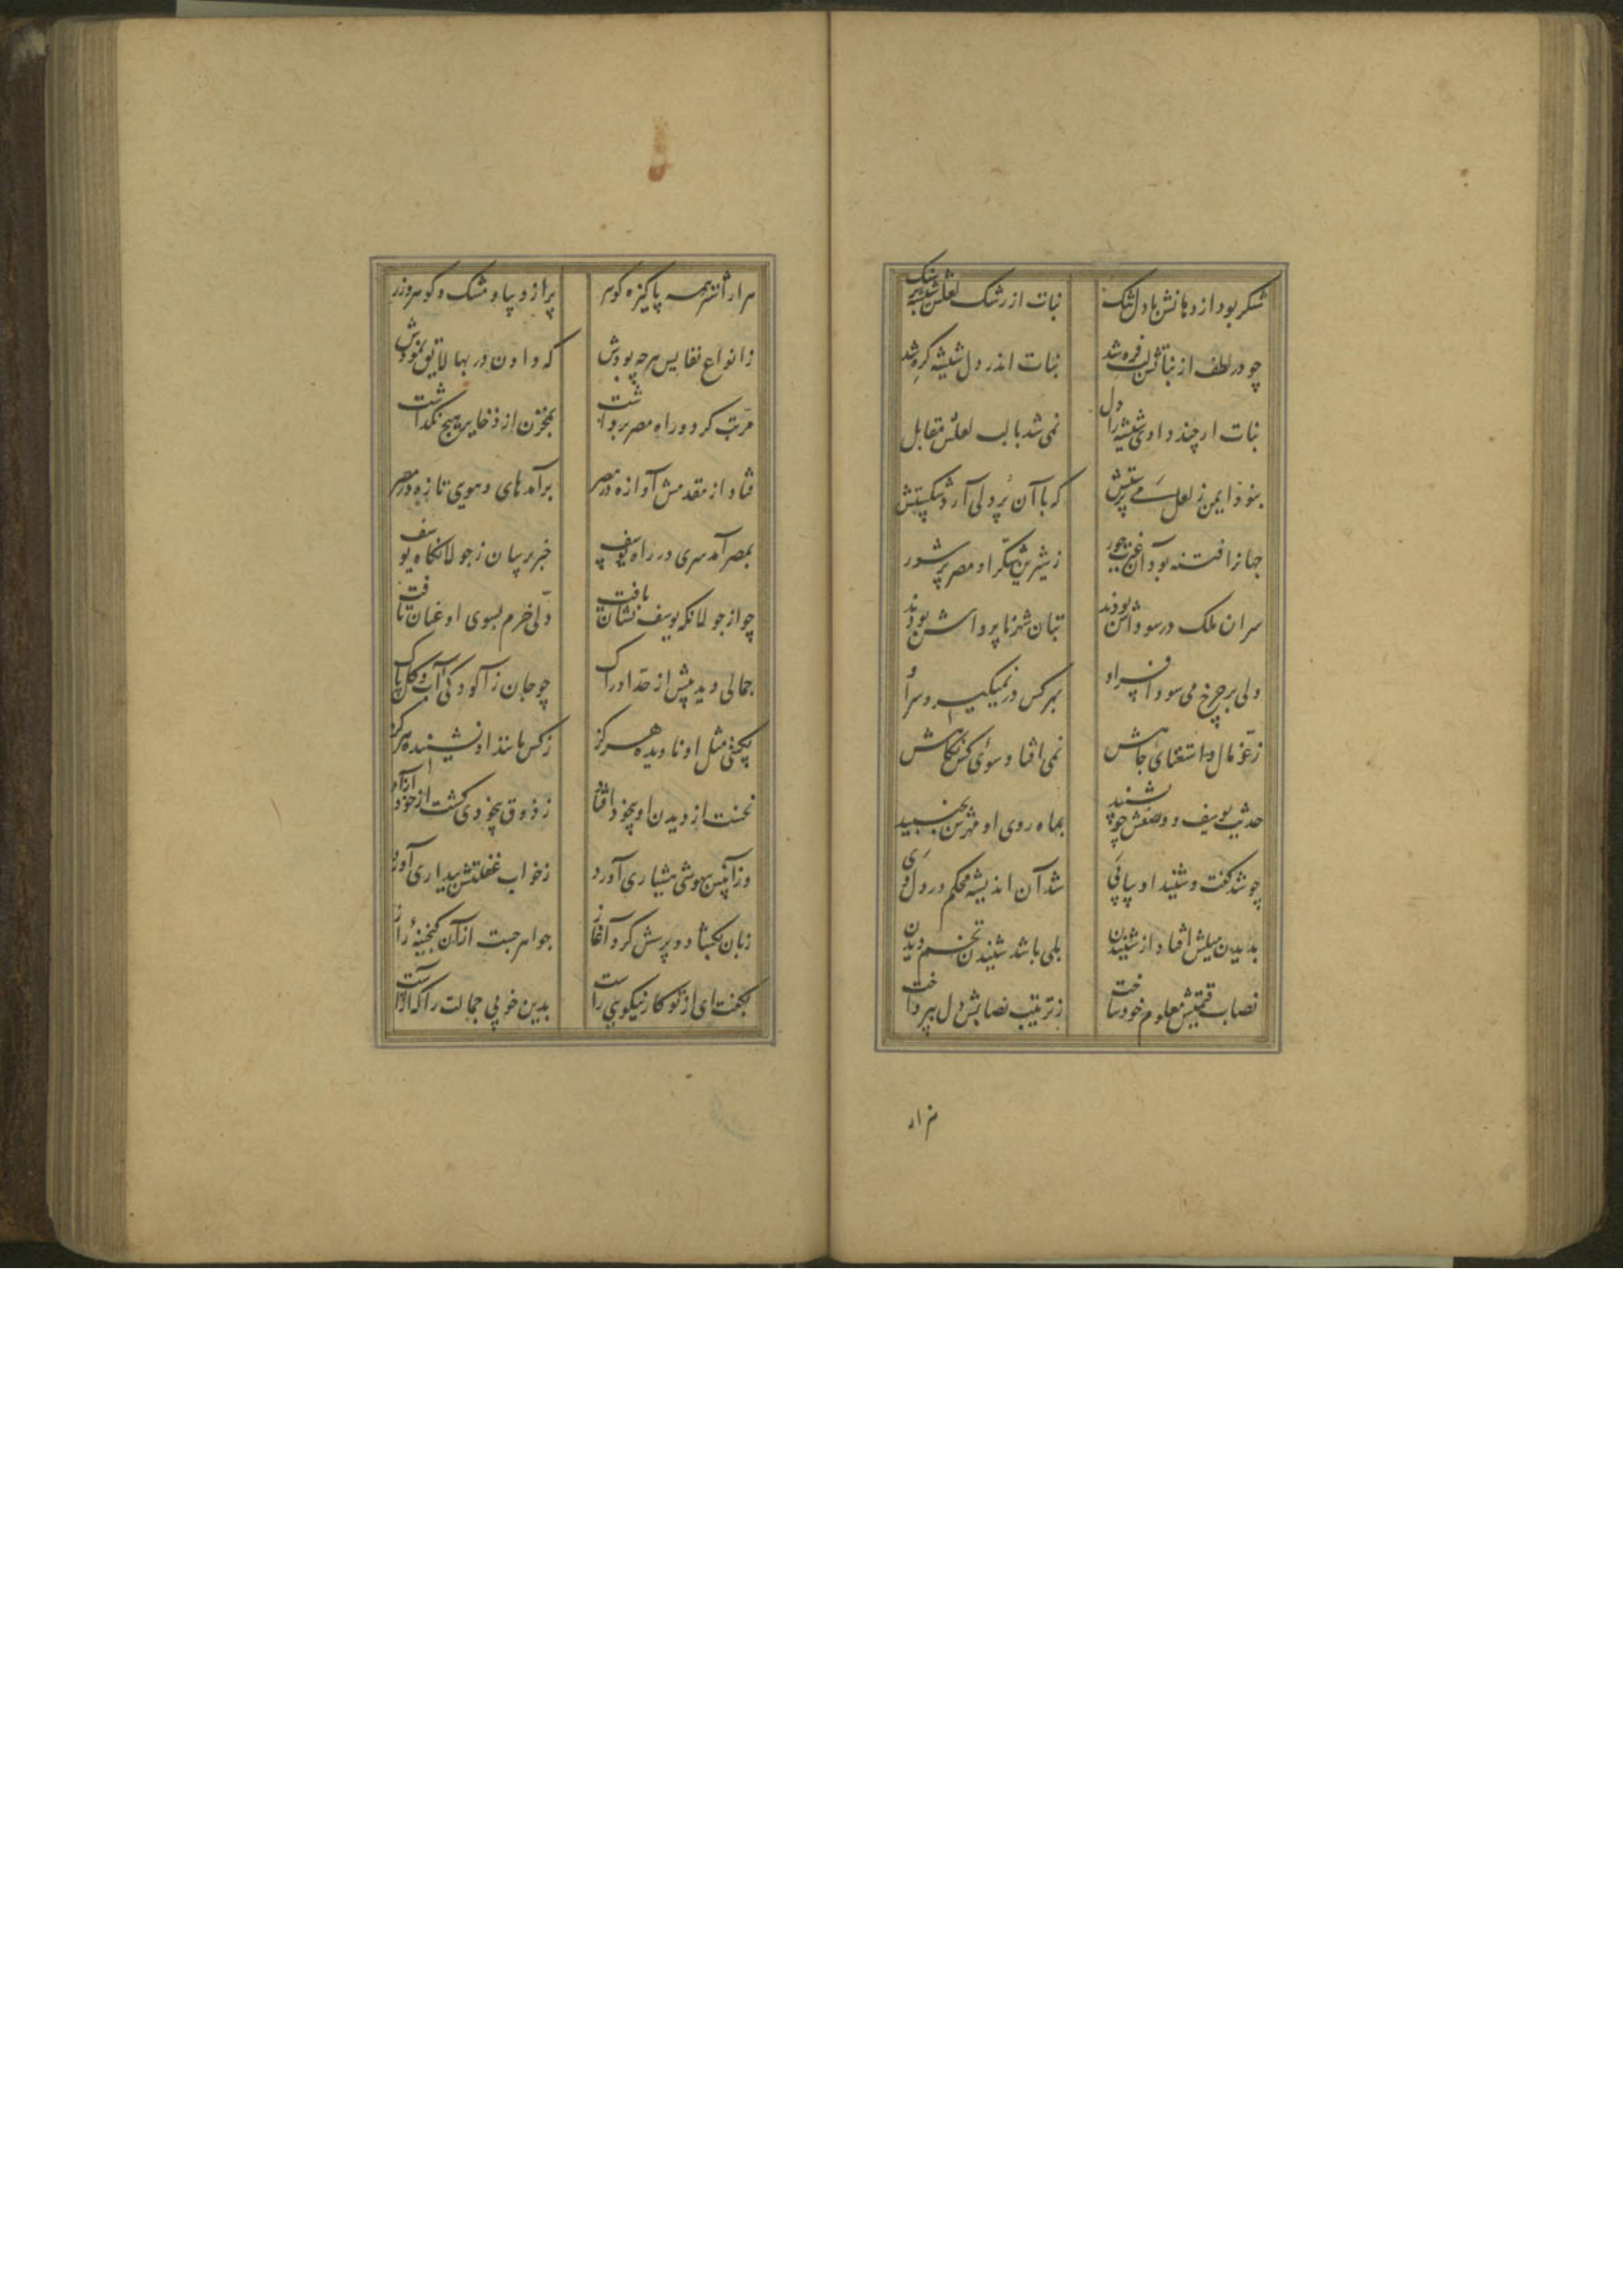 شکر بود از دهانش با دل تنک نبات از رشک لعلش شیشه بر سنک
چو در لطف از نباتش لب فره شد نبات اندر دل شیشه کره شد
نبات ار چند دادی شیشه را دل نمی شد با لب لعلش مقابل
بنود ایمن ز لعل می پرستش که با آن پردلی آرد شکستش
جهانرا فتنه بود آن غیرت حور ز شیرین شکر او مصر پر شور
سران ملک در سوداش بودند بتان شهر ناپرواش بودند
ولی بر چرخ می سود افسر او بهر کس در نمیکیرد سر او
ز عز مال و استغنای جاهش نمی افتاد سوی کس نکاهش
حدیث یوسف و وصفش چو بشنید بماه روی او مهرش بجنبید
چو شد کفت و شنید او پیاپی شد آن اندیشه محکم در دل وی
بدیدن میلش افتاد از شنیدن بلی باشد شنیدن تخم دیدن
نصاب قیمتش معلوم خود ساخت ز ترتیب نصابش دل بپرداخت
هزار
هزار اشتر همه پاکیزه کوهر پر از دیبا و مشک و کوهر و زر
ز انواع نفایس هر چه بودش که دادن در بها لایق نمودش
مرتب کرد و راه مصر برداشت بمخزن از ذخایر هیچ نکذاشت
فتاد از مقدمش آوازه در مصر برآمد های و هوی تازه در مصر
بمصر آمد سری در راه یوسف خبر پرسان ز جولانکاه یوسف
چو از جولانکه یوسف نشان یافت دلی خرم بسوی او عنان تافت
جمالی دید بیش از حد ادراک چو جان ز آلودکی آب و کل پاک
بکیتی مثل او نادیده هرکز ز کس مانند او نشنیده هرکز
نخست از دیدن او بیخود افتاد ز ذوق بیخودی کشت از خود آزاد
وزان پس بیهوشی هشیاری آورد ز خواب غفلتش بیداری آورد
زبان بکشاد و پرسش کرد آغاز جواهر جست از آن کنجینه راز
بکفت ای از تو کار نیکویی راست بدین خوبی جمالت را که آراست